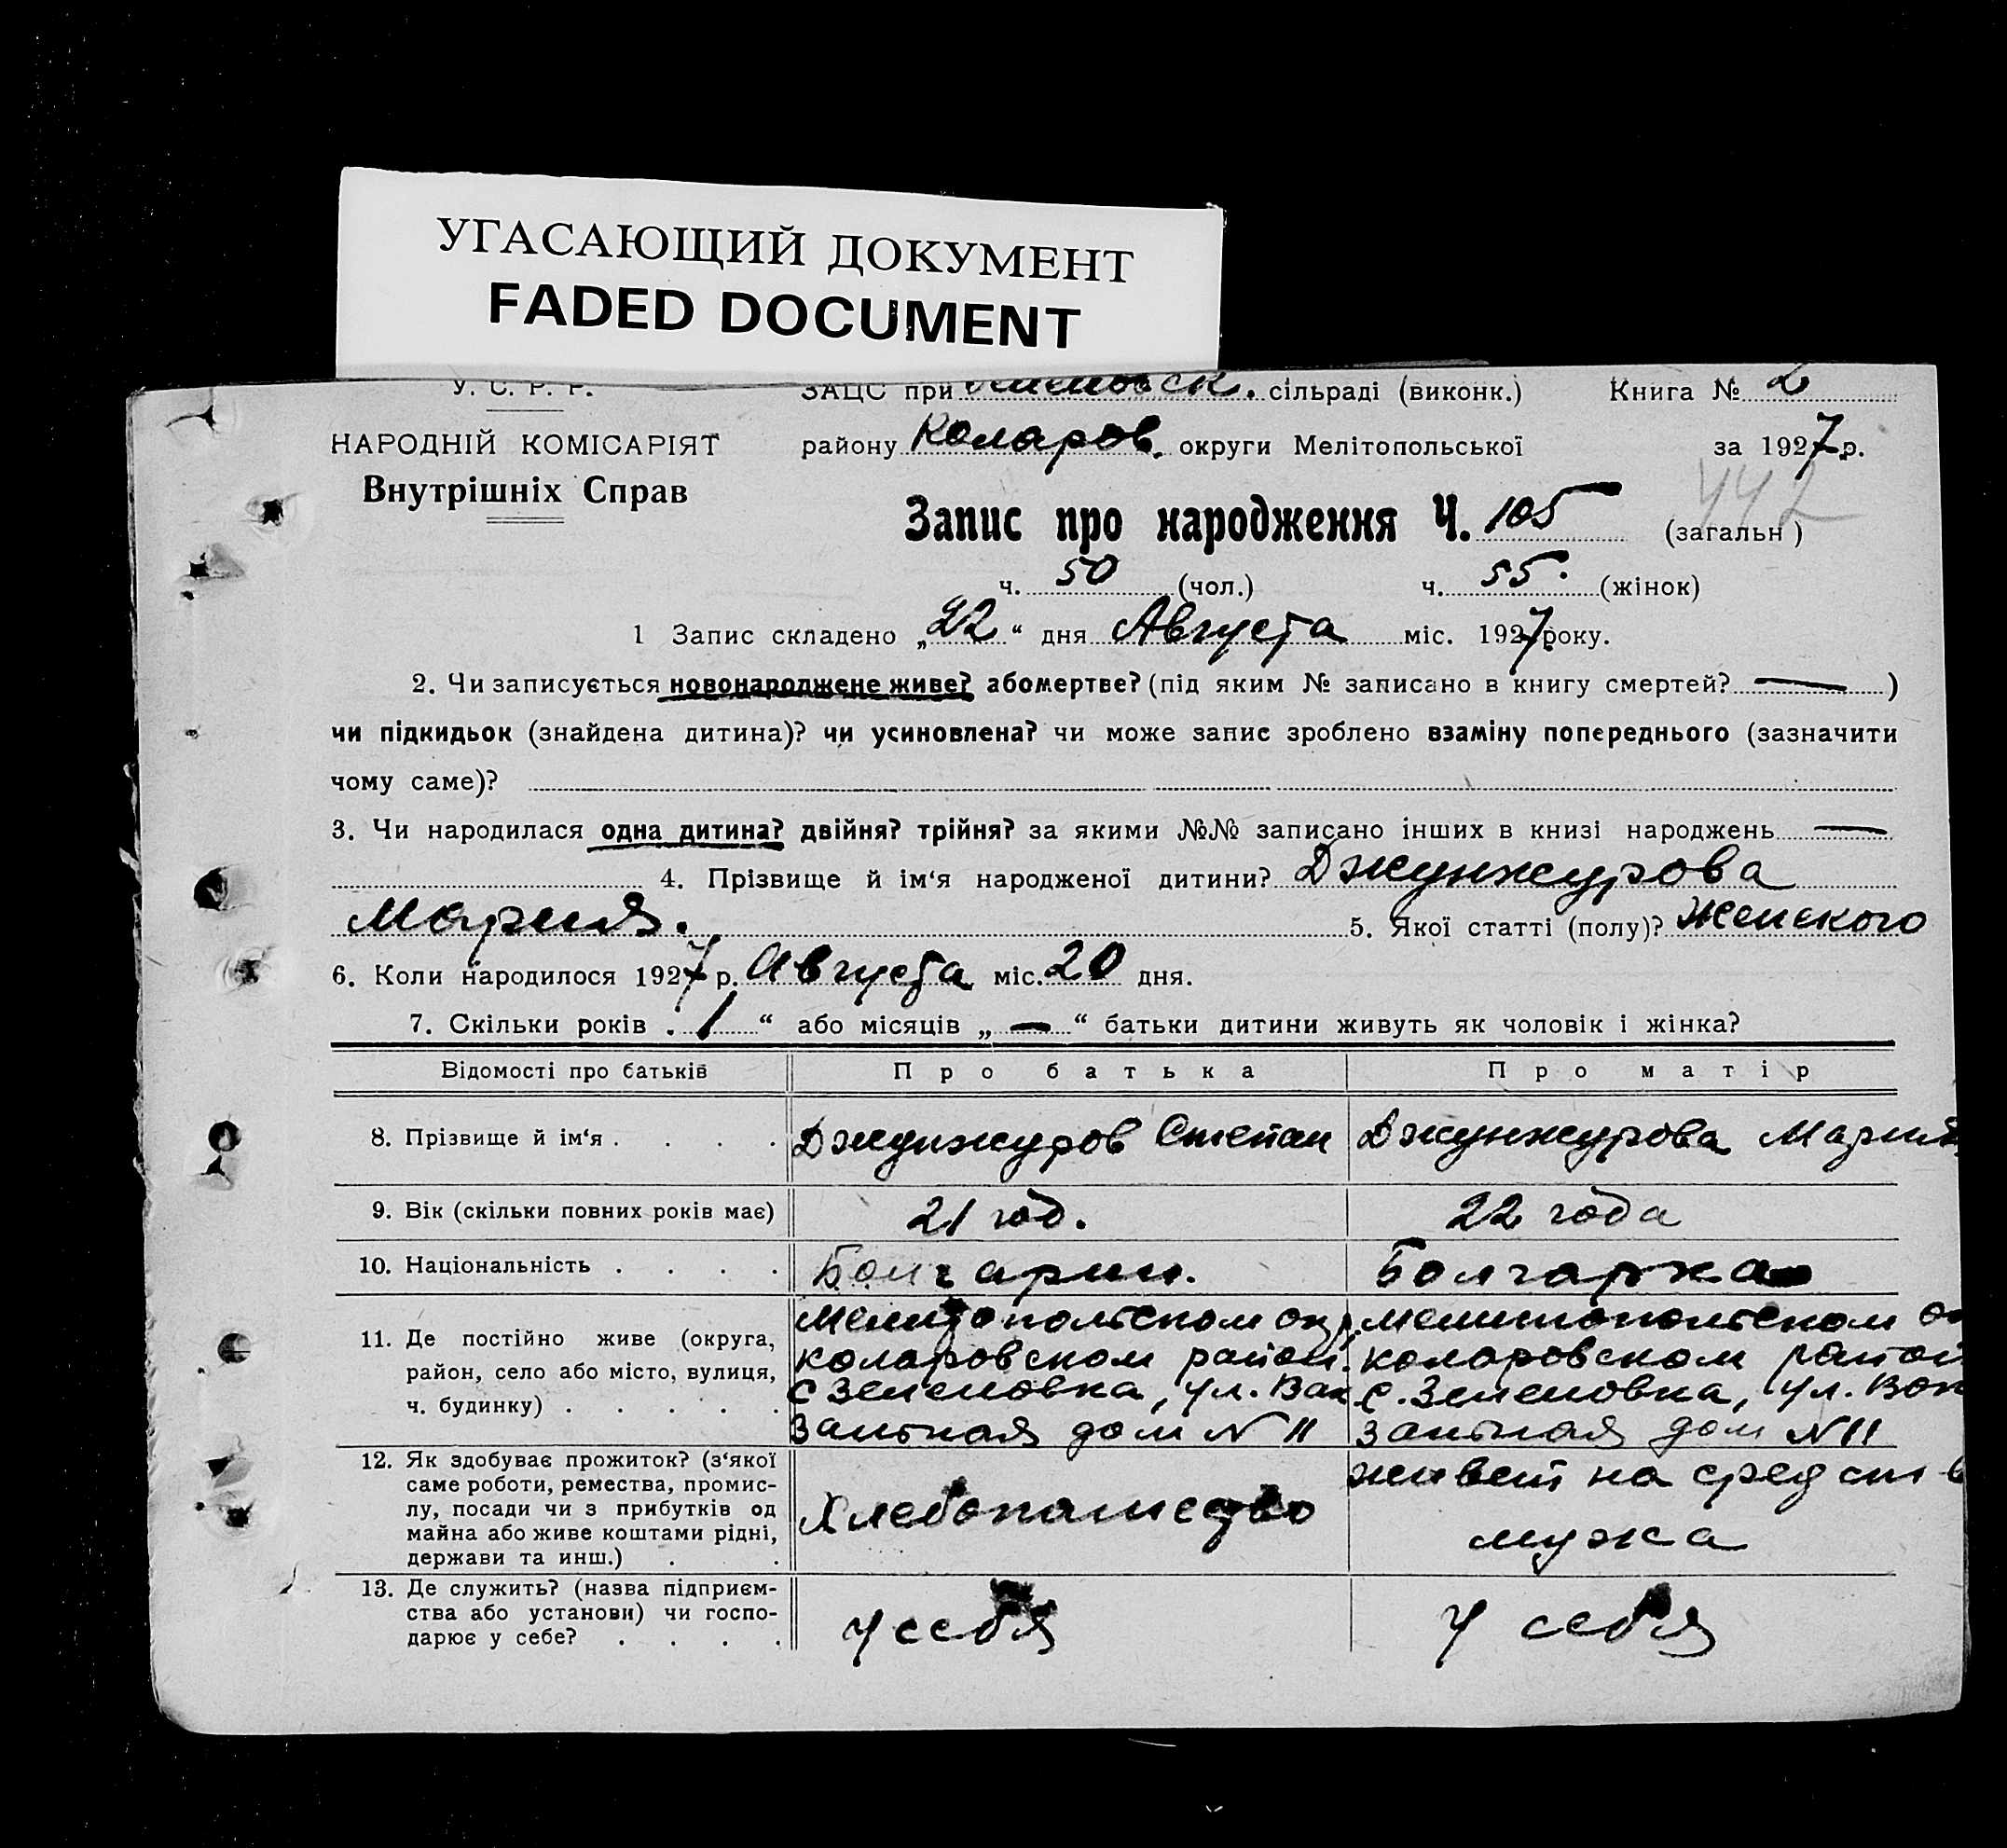 УГАСАЮЩИЙ ДОКУМЕНТ
FADED DOCUMENT
У. С. Р. Р.
ЗАЦС при сільраді (виконк.) Книга № 2
НАРОДНІЙ КОМІСАРІЯТ
Внутрішніх Справ
району Коларов. округи Мелітопольської за 1927 р.
442
Запис про народження Ч. 105 (загальн )
ч. 50 (чол.) ч. 55. (жінок)
1 Запис складено „22“ дня Августа міс. 1927 року.
2. Чи записується новонароджене живе? або мертве? (під яким № записано в книгу смертей? — )
чи підкидьок (знайдена дитина)? чи усиновлена? чи може запис зроблено взаміну попереднього (зазначити
чому саме)?
3. Чи народилася одна дитина? двійня? трійня? за якими №№ записано інших в книзі народжень —
4. Прізвище й ім‘я народженої дитини? Джунжурова
Мария. 5. Якої статті (полу)? Женского
6. Коли народилося 1927 р. Августа міс. 20 дня.
7. Скільки років „ 1 “ або місяців „ — “ батьки дитини живуть як чоловік і жінка?
Відомості про батьків Про батька Про матір
8. Прізвище й ім‘я . . . . Джунжуров Степан Джунжурова Мария
9. Вік (скільки повних років має) 21 год. 22 года
10. Національність . . . . Болгарин. Болгарка
11. Де постійно живе (округа,
район, село або місто, вулиця,
ч. будинку) . . . . .
Мелитопольском окр.
коларовском район.
с Зеленовка, ул. Вак
зальная дом N 11
мелитопольском ок
коларовском район
с. Зеленовка, ул. Вок
зальная дом N 11
12. Як здобуває прожиток? (з‘якої
саме роботи, ремества, промис-
лу, посади чи з прибутків од
майна або живе коштами рідні,
держави та инш.) . .
Хлебопашество
живет на средств
мужа
13. Де служить? (назва підприєм-
ства або установи) чи госпо-
дарює у себе? . . . .
у себя
у себя